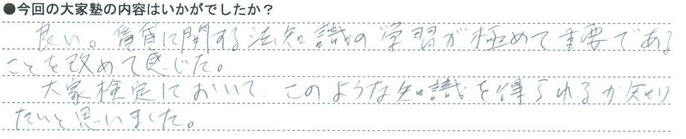 ●今回の大家塾の内容はいかがでしたか？
良い。賃貸に関する法知識の学習が極めて重要である
ことを改めて感じた。
大家検定において、このような知識を得られるか知り
たいと思いました。